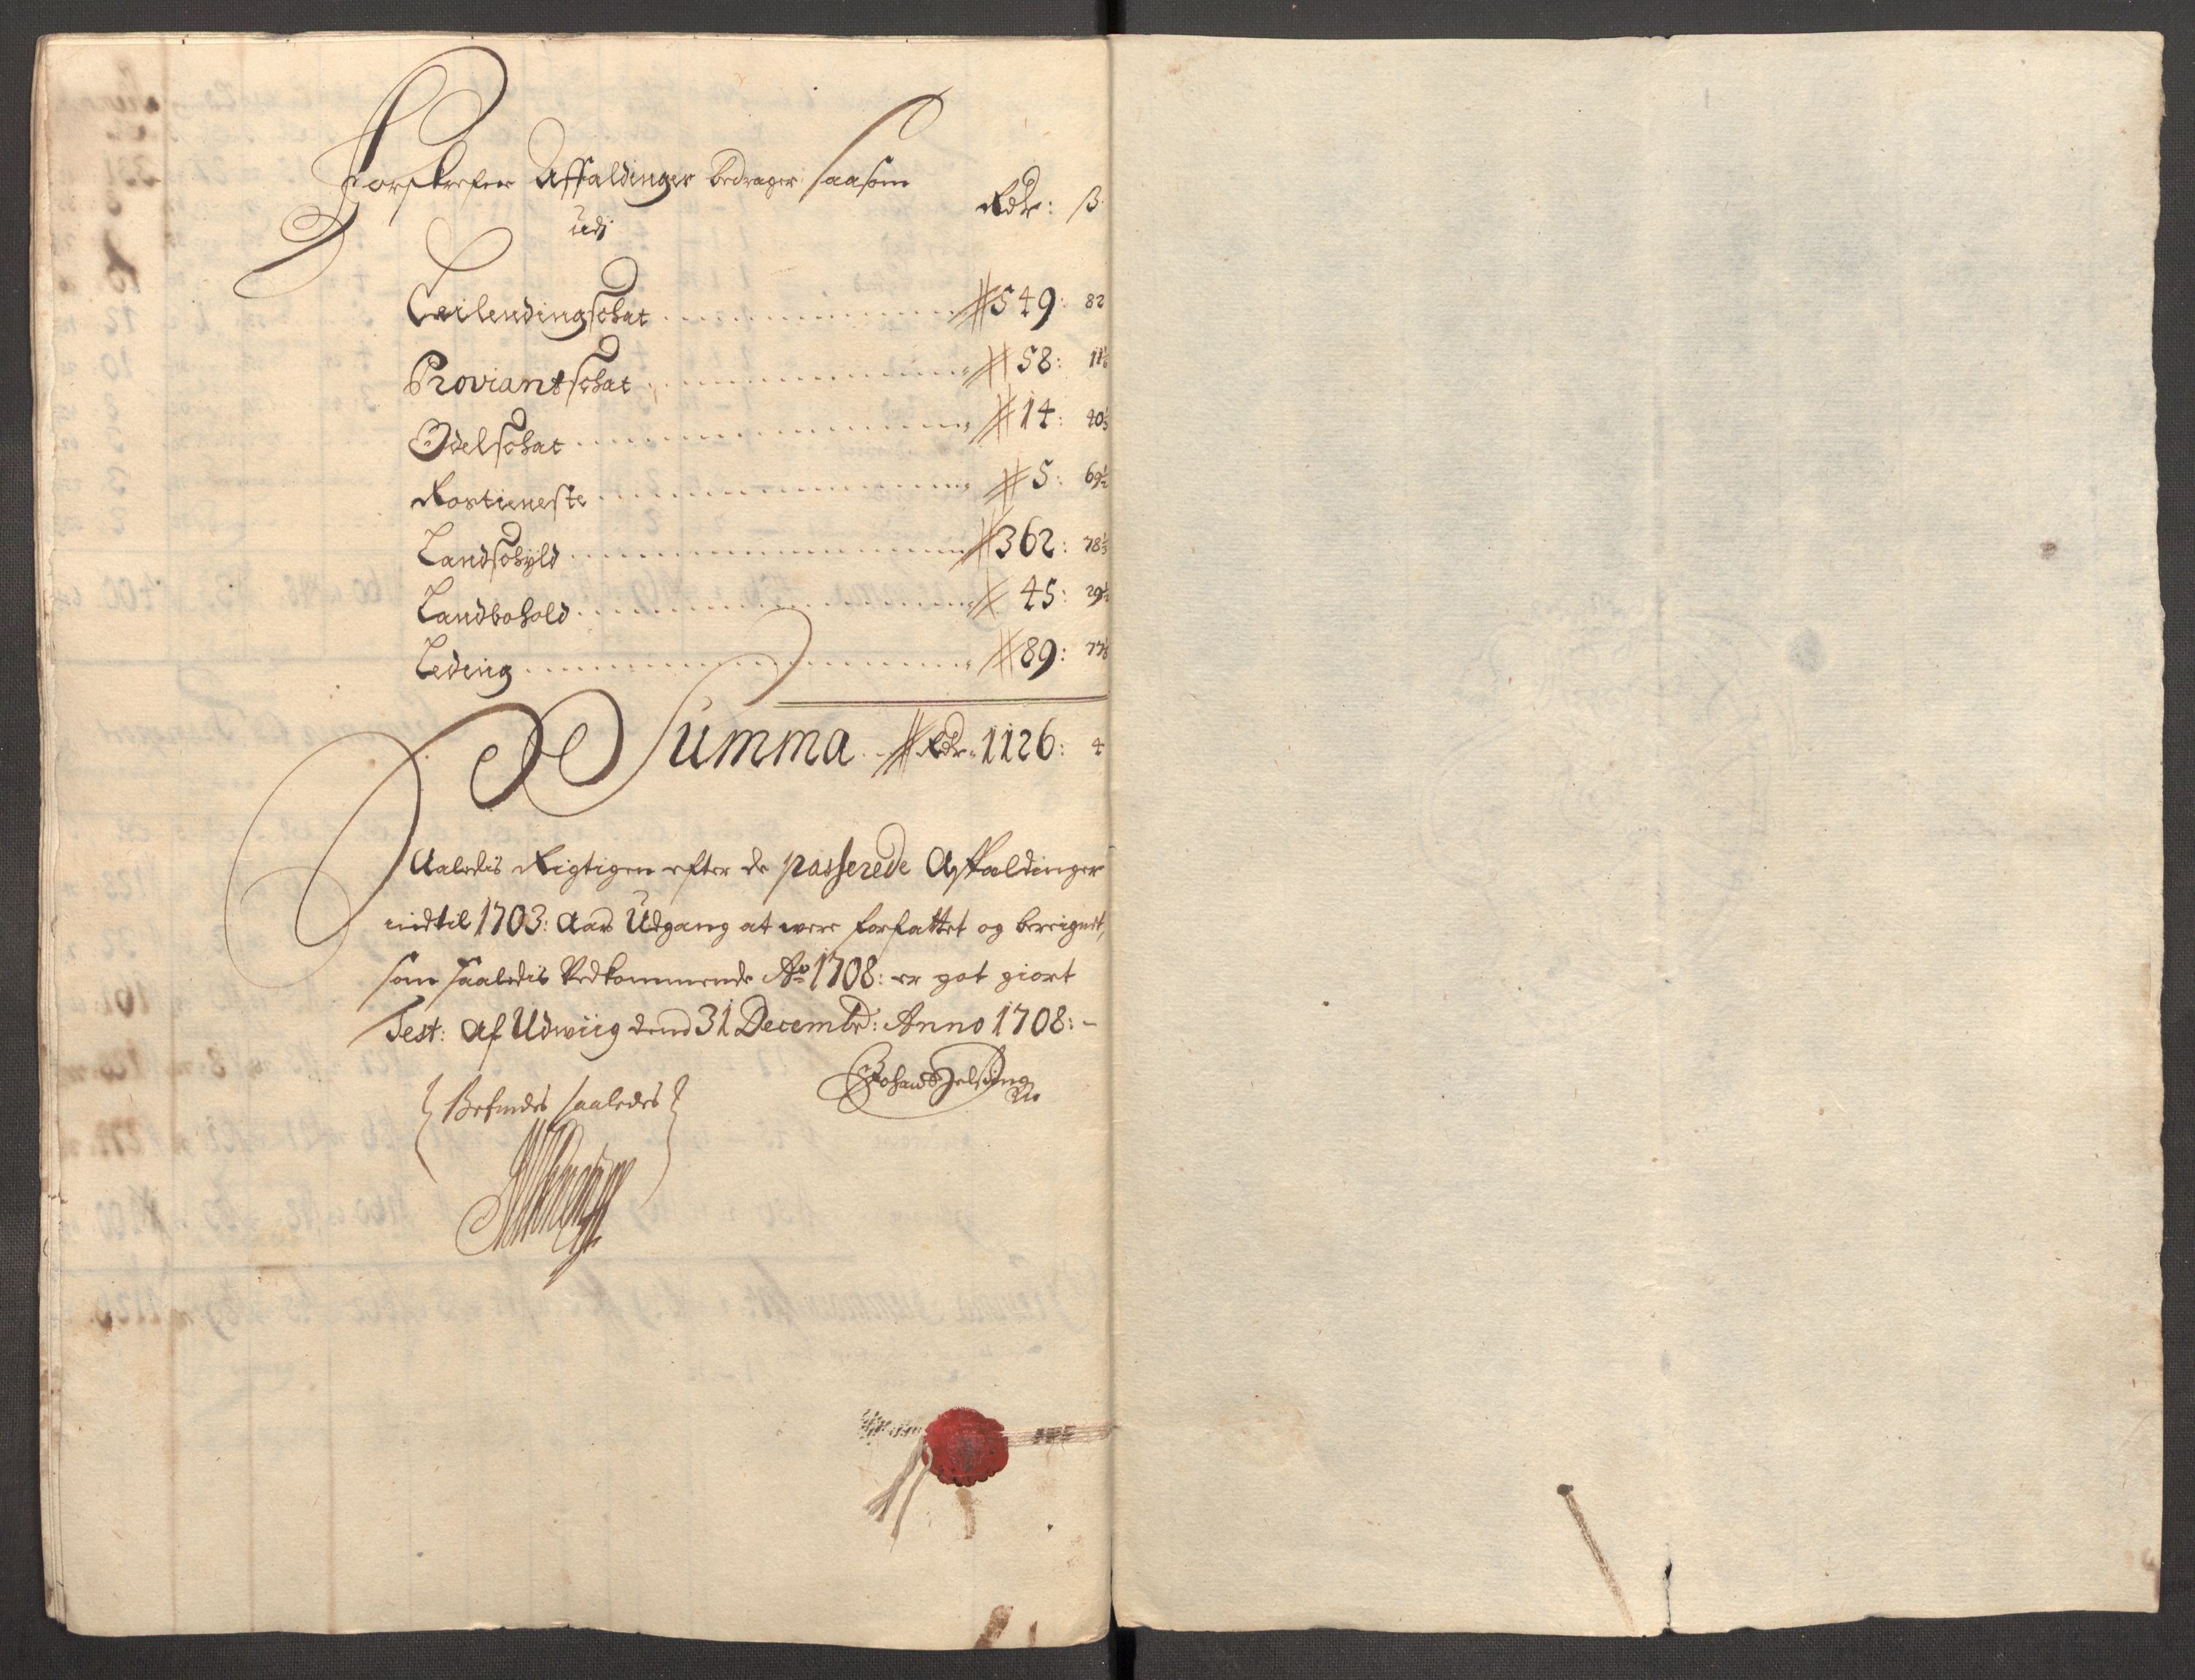 Forskrefne Affaldinger bedrager saasom
udj
Rdr: ß
Leilendingschat # 549: 82
Proviantschat # 58: 11½
Odelschat # 14: 40⅓
Rostieneste # 5: 69½
Landschyld # 362: 78⅓
Landbohold # 45: 29½
Leding # 89: 77⅙
Summa # Rdr: 1126: 4
Saaledis Rigtigen efter de passerede Affaldinger
indtil 1703: Aars Udgang at were forfattet og bereignet,
som saaledis Vedkommende Ao 1708: er got giort
Test: Af Udwiig dend 31 Decembr: Anno 1708: -
Befindes saaledes